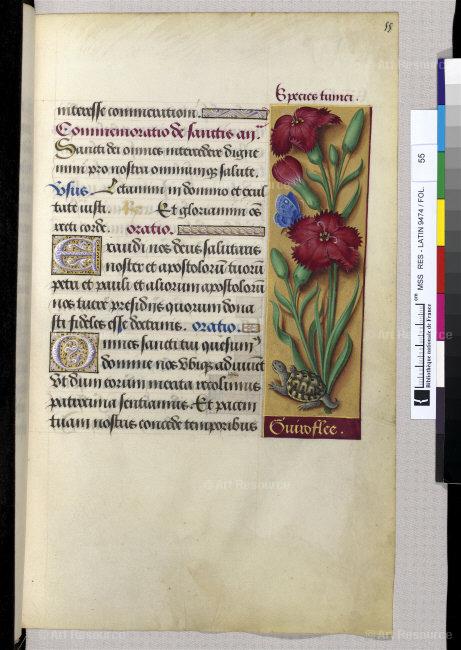 55
Species tunici.
interesse commeration.
Commemoratio de sanctis an
Sancti dei omnes intercedere digne
mini pro nostra omniumque salute.
Vsus. Letamini in domino et exul
tate iusti. Et gloriamini oes
recti corde. oratio.
Exaudi nos deus salutaris
noster et apostolorū tuorū
petri et pauli et aliorum apostolorū
nos tuere presidijs quorum dona
sti fideles esse doctrinis. oratio.
Omnes sancti tui quesum
domine nos vbique adiuuet
Vt dum eorum merita recolimus
patrocinia sentiamus. Et pacem
tuam nostris concede temporibus
Guiroflee.
MSS RES - LATIN 9474 / FOL 55
Bibliothèque nationale de France
cm
© Art Resource
© Art Resource
© Art Resource